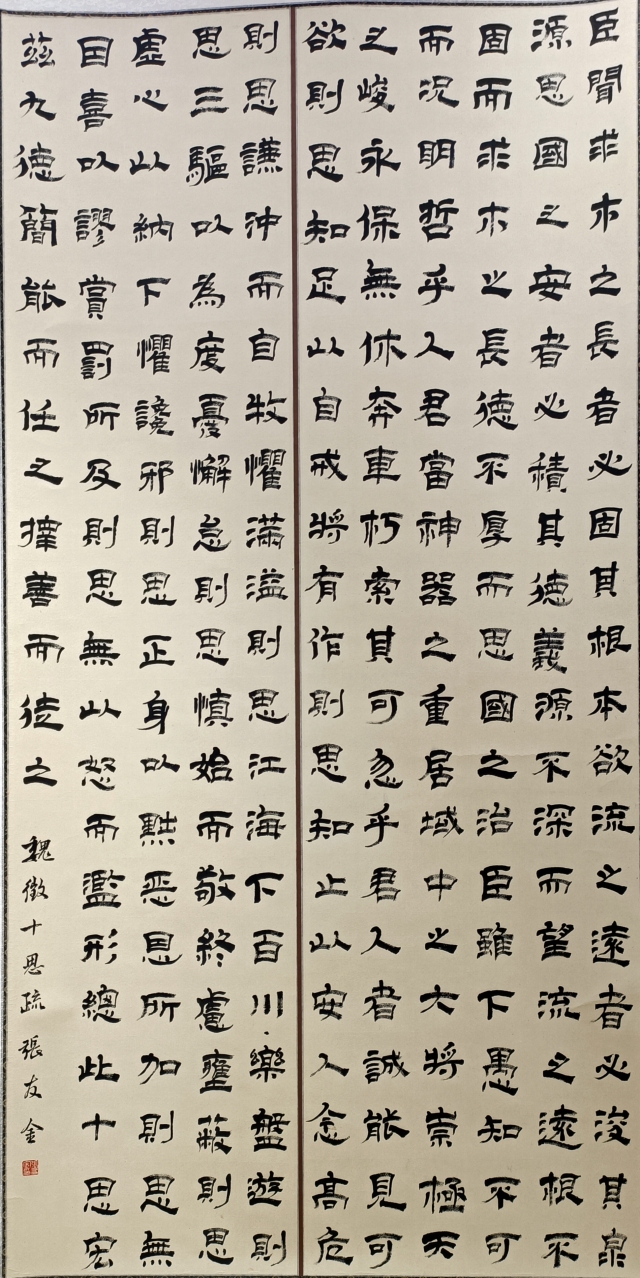 臣聞求木之長者必固其根本欲流之遠者必浚其泉
源思國之安者必積其德義源不深而望流之遠根不
固而求木之長德不厚而思國之治臣雖下愚知不可
而況明哲乎人君當神器之重居域中之大將崇極天
之峻永保無休奔車朽索其可忽乎君人者誠能見可
欲則思知足以自戒將有作則思知止以安人念高危
則思謙沖而自牧懼滿溢則思江海下百川樂盤遊則
思三驅以為度憂懈怠則思慎始而敬終慮壅蔽則思
虛心以納下懼讒邪則思正身以黜惡恩所加則思無
因喜以謬賞罰所及則思無以怒而濫形總此十思宏
茲九德簡能而任之擇善而從之
魏徵十思疏張友金